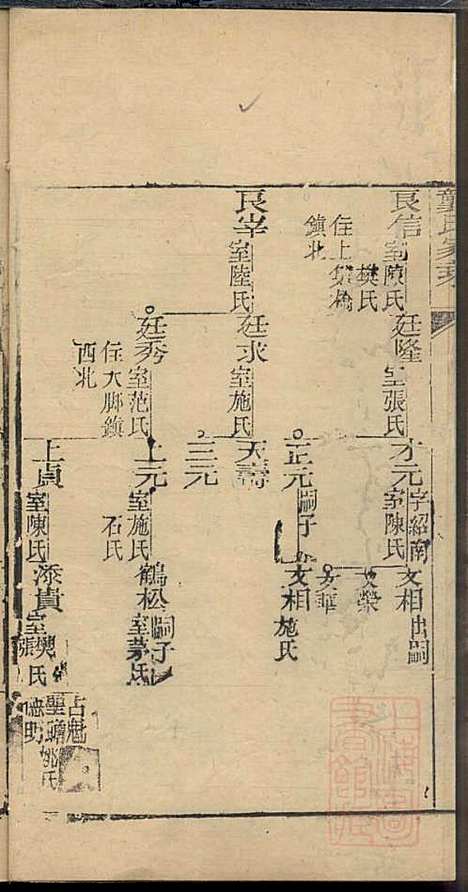 龔氏家乘
良信 室陳氏 樊氏
住上 橋
鎮北
廷隆 室張氏
才元 字紹南 室陳氏
文相 出嗣
文榮
文華
正元 嗣子
文相 施氏
良宰 室陸氏
廷求 室施氏
天壽
三元
廷秀 室范氏
住大脚鎮
西北
上元 室施氏
石氏
鶴松 嗣子
室茅氏
上貞 室陳氏
添貴 室樊氏
張
占魁
聖
聰明